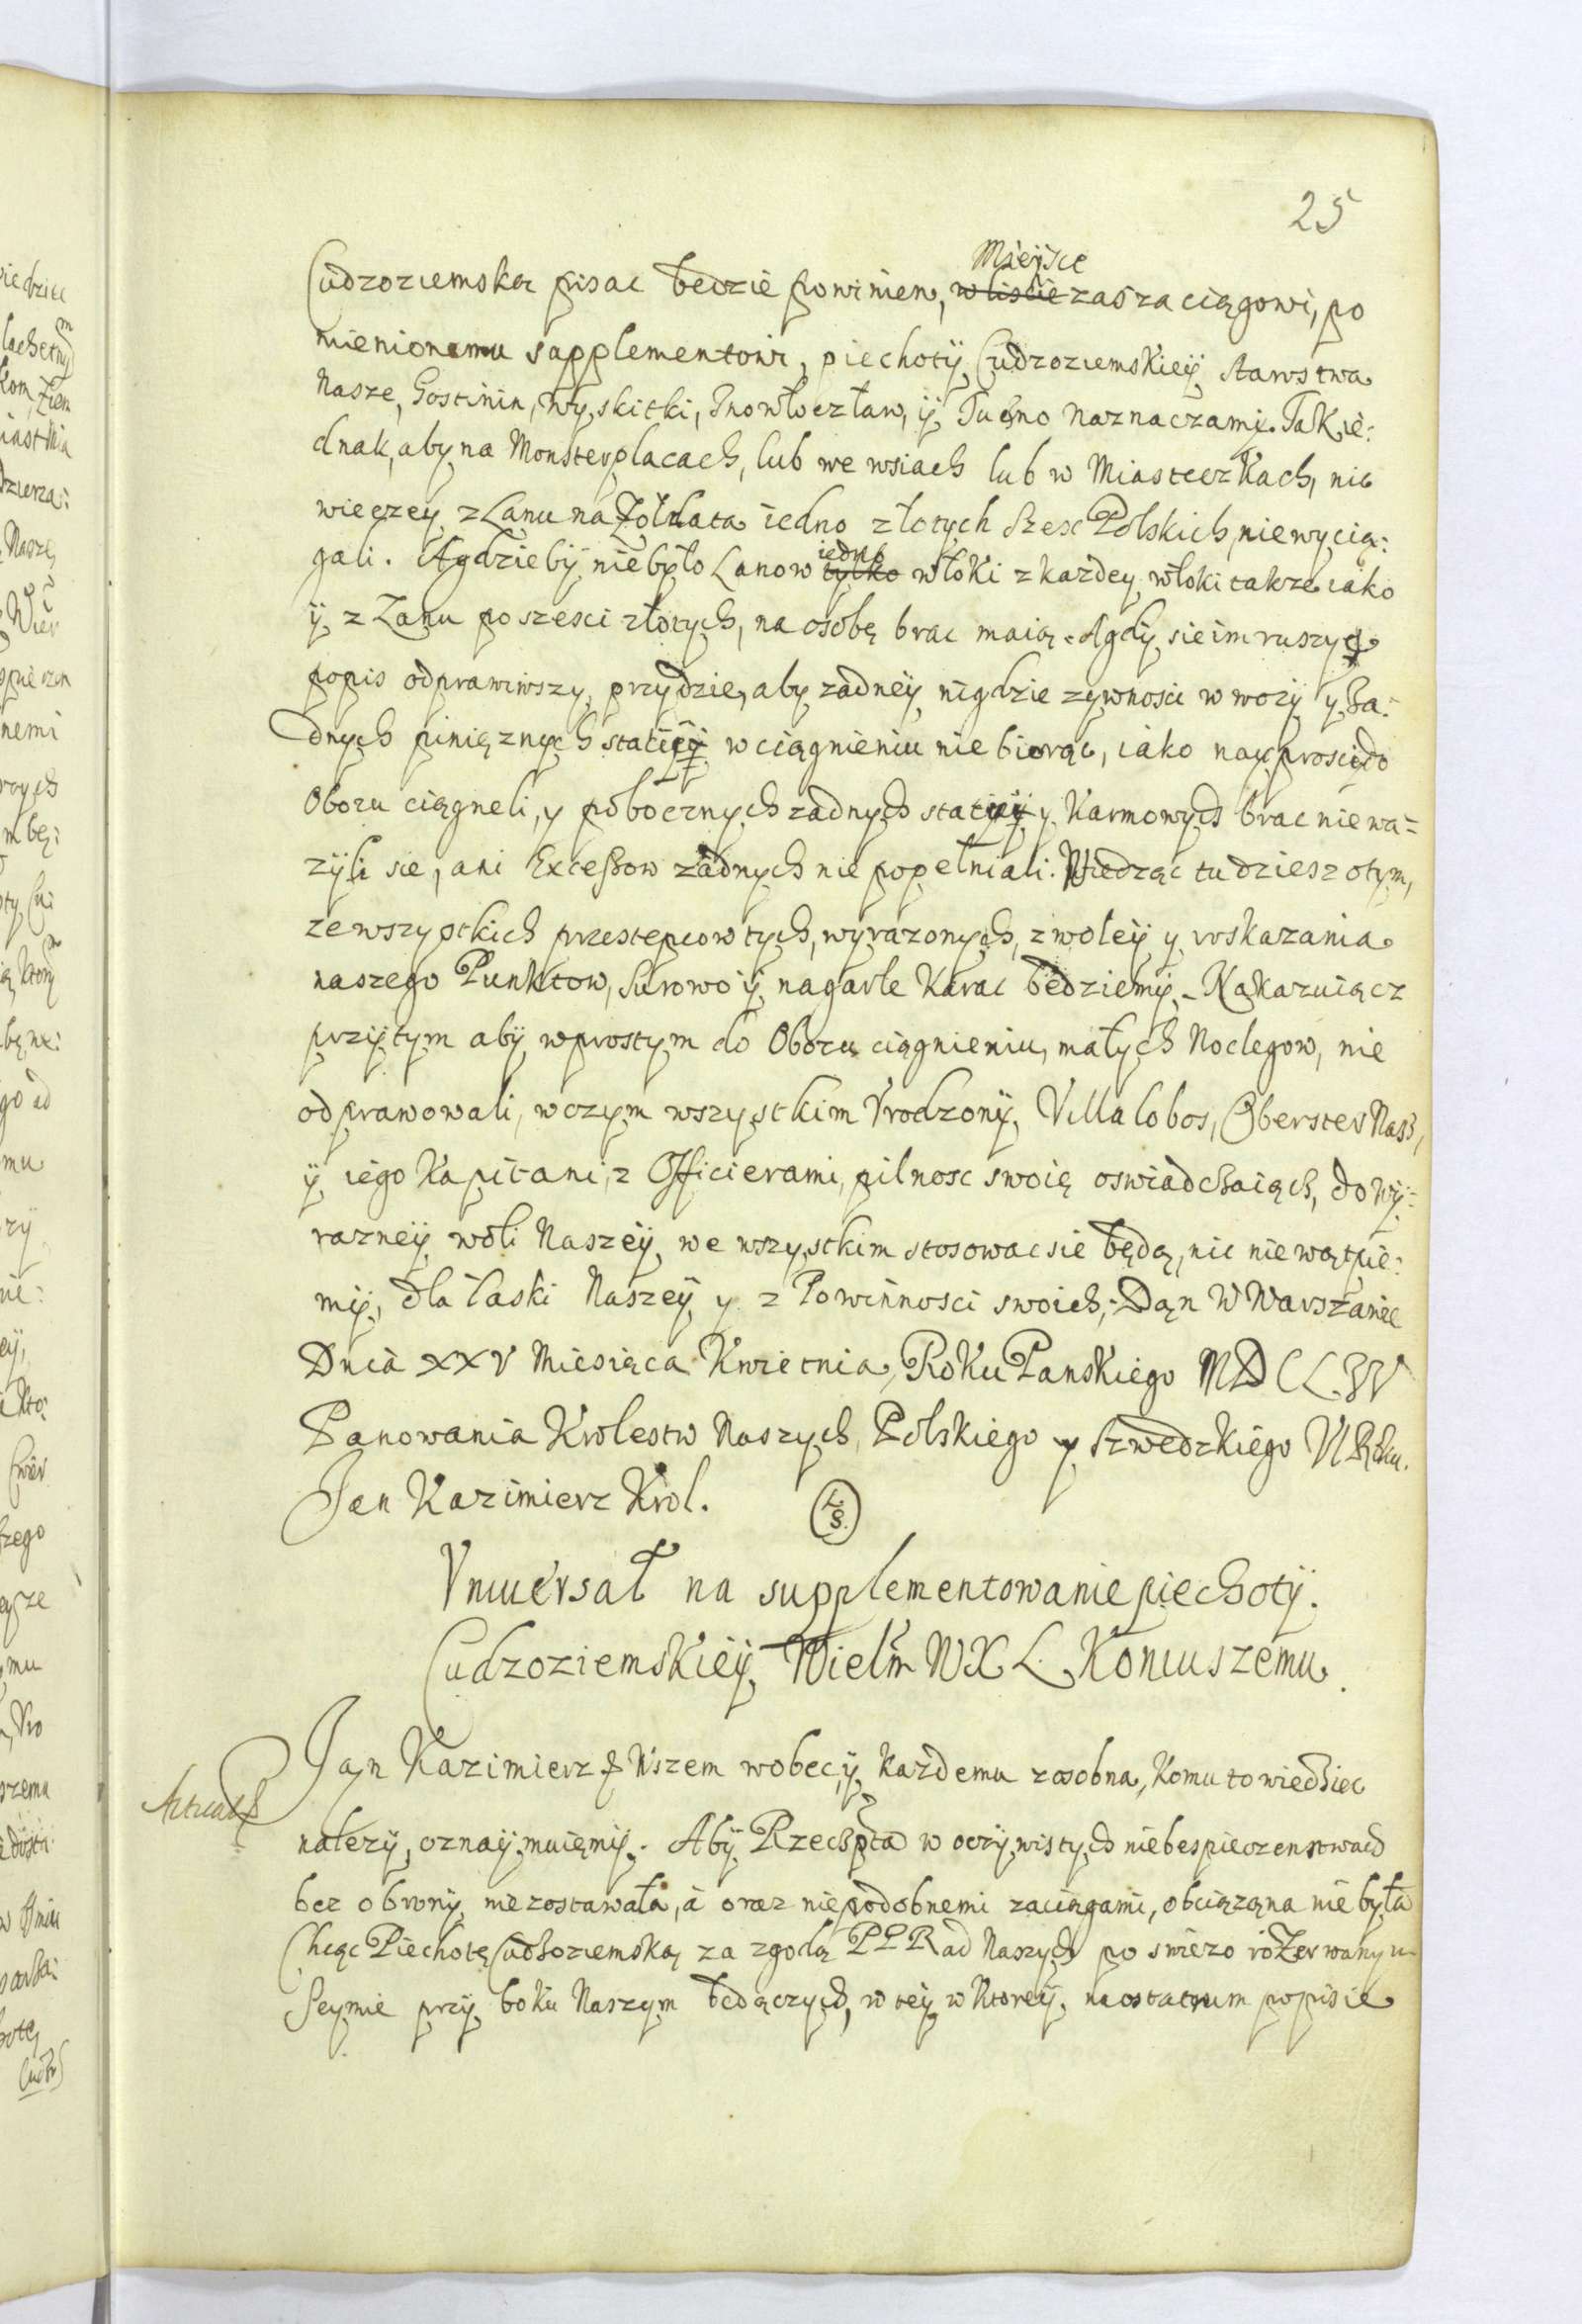 25
Cudzoziemska pisac będzie powinien, Mieysce w liscie zas zaciągowi, po
mienionemu supplementowi, piechoty Cudzoziemskiey Starostwa
Nasze, Gostinin, Wyskitki, Inowłoczław, ÿ Tuchno naznaczamÿ. Tak ie:
dnak, aby na Monsterplacach, lub we wsiach lub w Miasteczkach, nic
wieczey z Łanu na Zołdata iedno złotych szesc Polskich, nie wycią:
gali. A gdzieby nie było Łanow iedno tylko włoki z kazdey włoki takze iako
ÿ z Łanu po szesci złotych, na osobę brac maią. A gdÿ sie im ruszyc
popis odprawiwszy, przydzie, aby zadney nigdzie zywnosci w wozÿ y za:
dnych piniąznych staciÿ w ciągnieniu nie biorąc, iako nayprosciedo
Obozu ciągneli, y pobocznych zadnych staciÿ y Karmowych brac nie wa=
zÿli sie, ani Excessow zadnych nie popełniali. Wiedząc tudziesz o tym,
ze wszystkich przestępcow tych, wyrazonych, z woleÿ y roskazania
naszego Punktow, surowo ÿ na garle karac będziemÿ. Nakazuiącz
przÿtym abÿ w prostym do Obozu ciągnieniu, małych Noclegow, nie
odprawowali, w czym wszystkim Vrodzonÿ Villalobos, Oberster Nasz,
ÿ iego Kapitani, z Officierami, pilnosc swoię oswiadczaiąch, do wÿ=
razneÿ woli Naszeÿ we wszystkim stosowac sie będą, nic nie wątpie:
mÿ, dla łaski Naszeÿ y z Powinnosci swoich, Dąn W Warszawie
Dnia XXV Miesiąca Kwietnia, Roku Panskiego MDCLIV
Panowania Krolestw Naszych, Polskiego y Szwedzkiego VI Roku.
Jan Kazimierz Krol. LS.
Vniuersał na supplementowanie piechotÿ.
Cudzoziemskieÿ, Wielm WXL Koniuszemu.
Jan Kazimierz & Wszem wobec, ÿ kazdemu zosobna, komu to wiedziec
nalezÿ, oznaÿmuięmÿ. Abÿ Rzechpta w oczÿwistych niebespieczenstwach
bez obronÿ nie zostawała, a oraz niepodobnemi zaciągami, obciąząna nie była
Chcąc Piechotę Cudzoziemską za zgodą PP Rad Naszych po swiezo rozerwanym
Seymie przÿ boku Naszym będączych, w tey w ktoreÿ, na ostatnim popisie